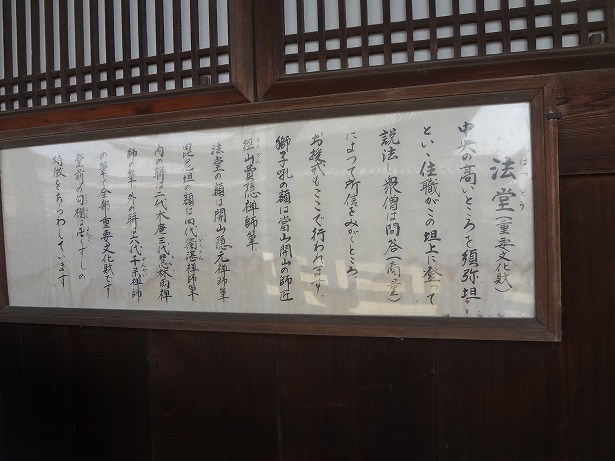 はつとう
法堂(重要文化財)
中央の高いところを須弥坦
といい住職がこの坦上に登って
説法し衆僧は問答(商量)
によって所信をみがくところ。
お授戒もここで行われます。
獅子吼の額は當山開山の師匠
径山費隠禅師筆
法堂の額は開山隠元禅師筆
毘尼坦の額は四代獨湛禅師筆
内の聯は二代木庵三代慧林両禅
師の筆 外の聯は六代千呆禅師
の筆で全部重要文化財です
堂前の勾欄は卍くずしの
特徴をあらわしています